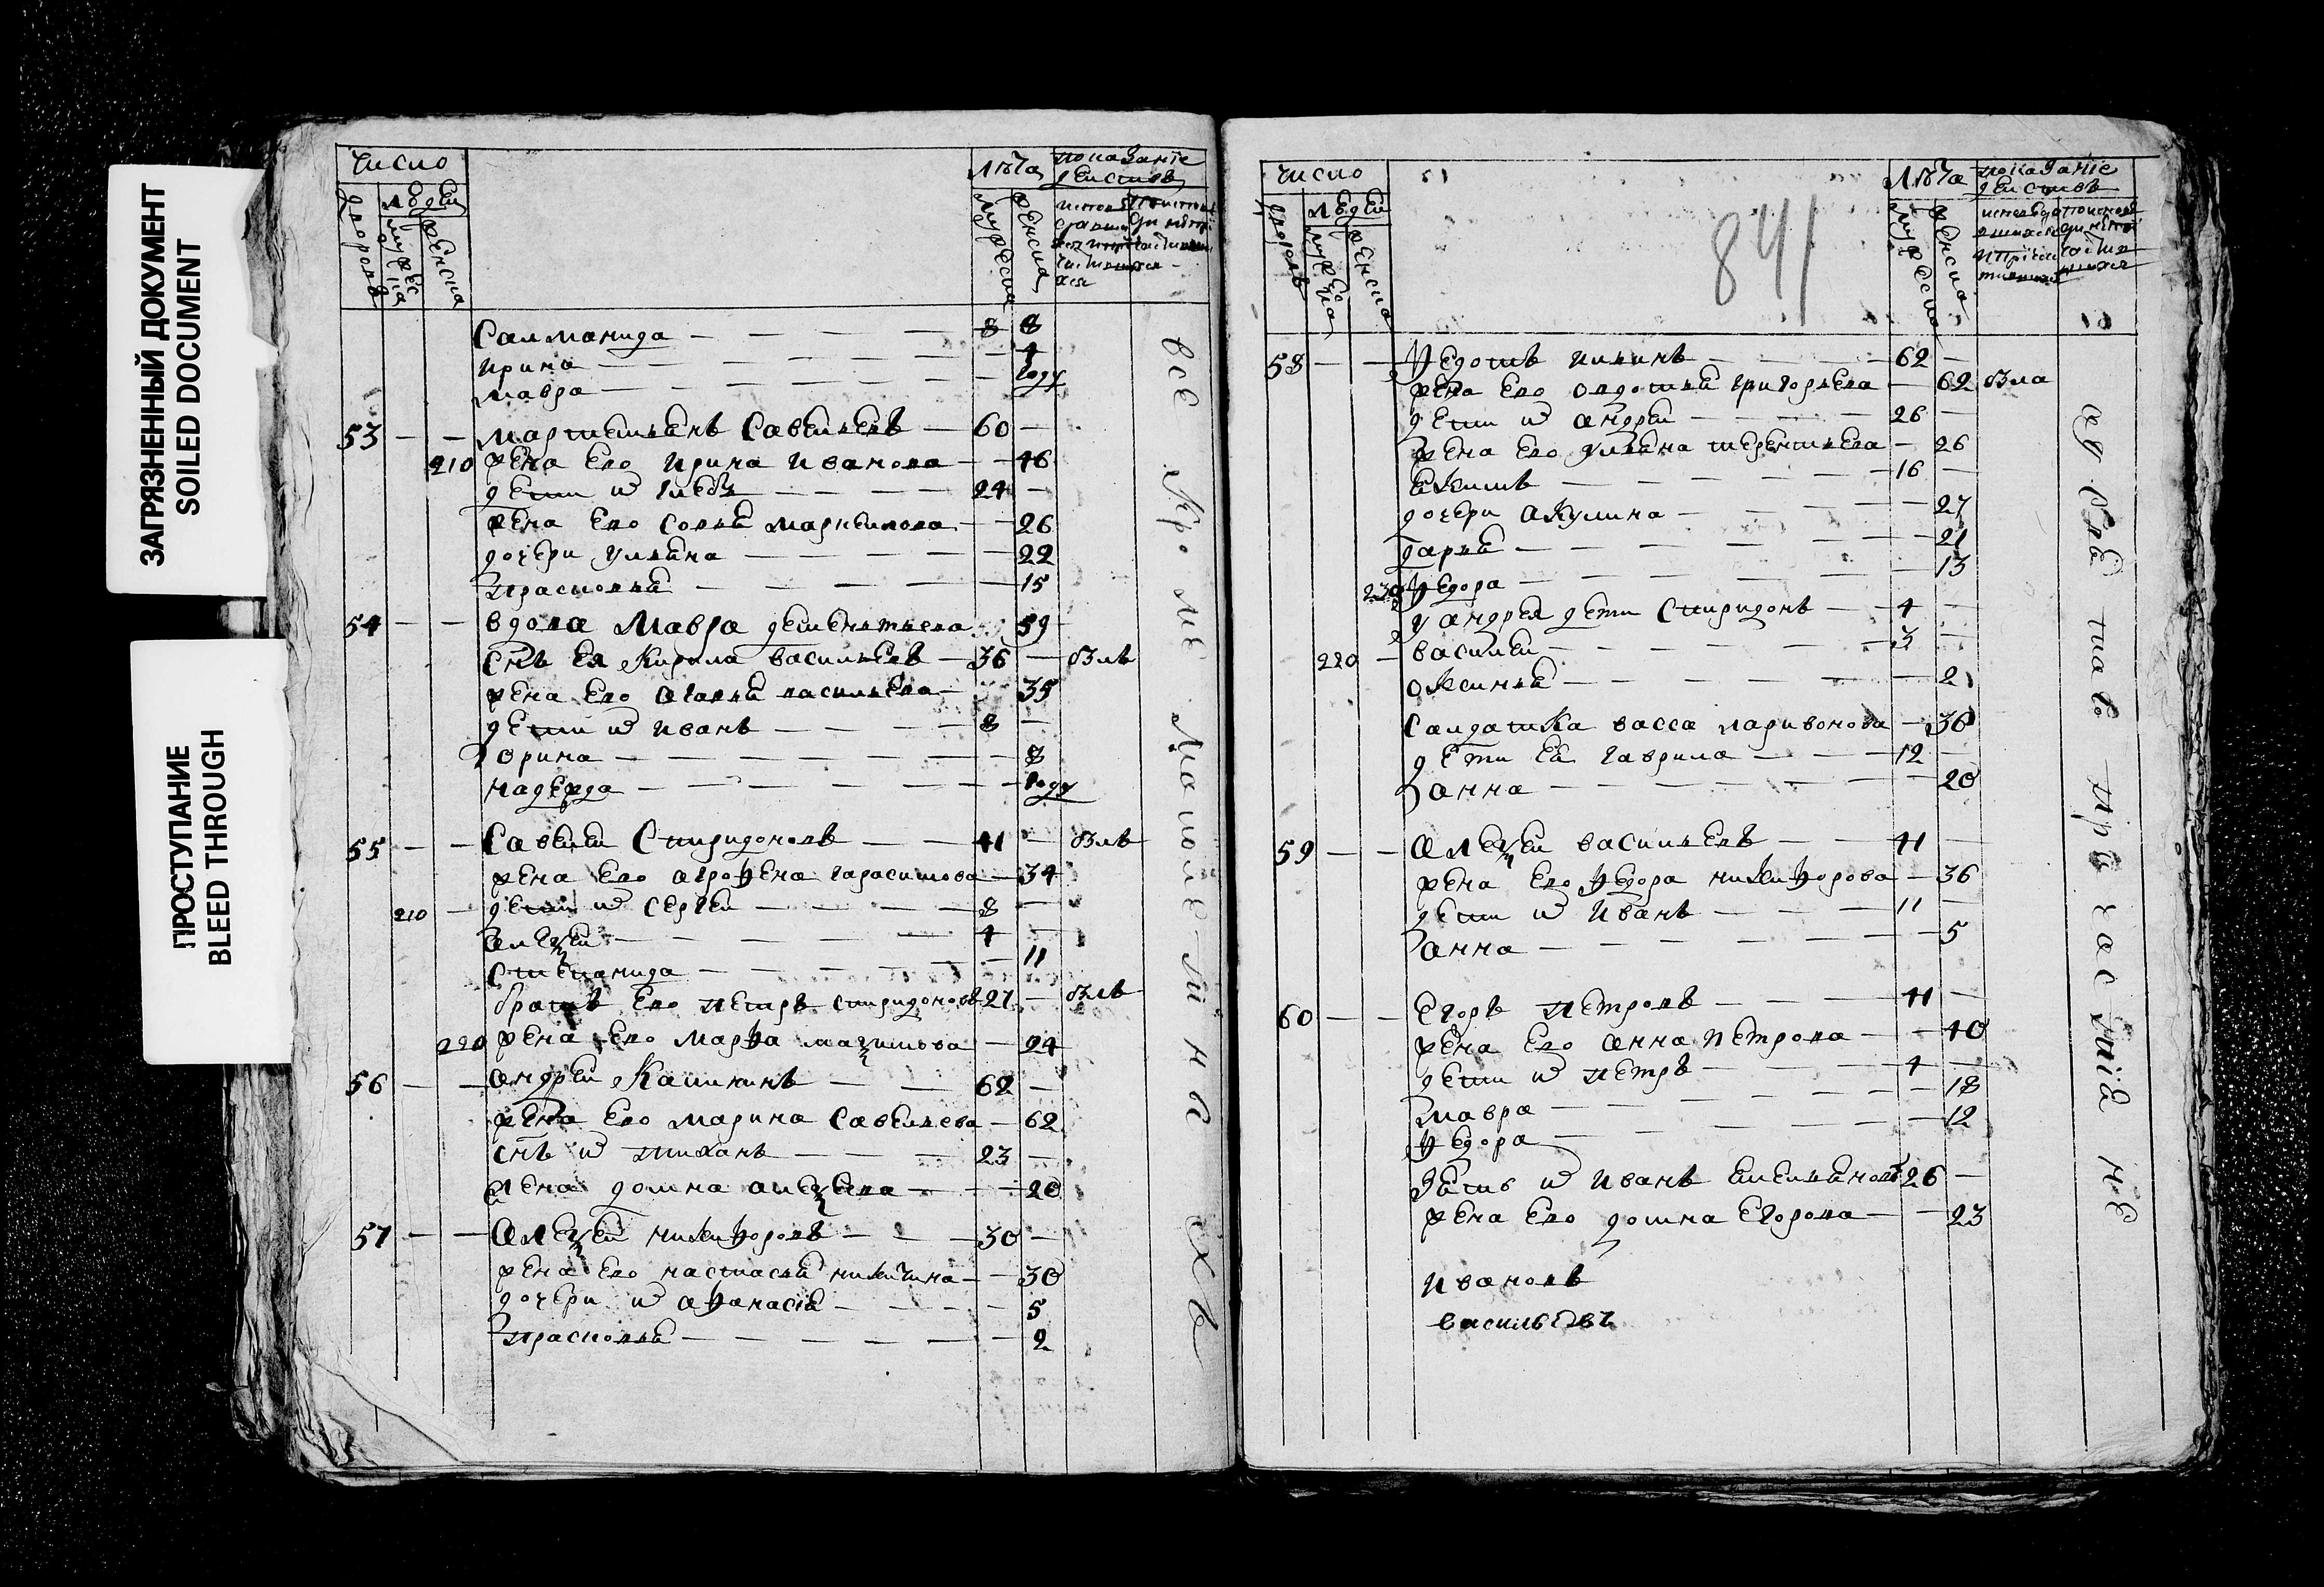 ЗАГРЯЗНЕННЫЙ ДОКУМЕНТ
SOILED DOCUMENT
ПРОСТУПАНИЕ
BLEED THROUGH
число
людей
лѣта
показанїе
дѣйствъ
дворовъ
мужеска
женска
мужеска
женска
Салманида — 8 8
ирина — 4
мавра — году
53 — — мартемьянъ Савельевъ — 60 —
210 жена Ево ирина иванова — 46
дети их глебъ — 24 —
жена Ево Софья маркелова — 26
дочери ульяна — 22
прасковья — 15
54 — — вдова Мавра дементьева 59
снъ Ея Кирила васильевъ — 36 — былъ
жена Ево агафья васильева — 35
дети их иванъ — 8 —
орина — 8
надежда — году
55 — — Савелей Спиридоновъ — 41 — былъ
жена Ево агрофена гарасимова — 34
210 — дети их сергей — 8 —
алеѯей — 4 —
степанида — 11
братъ Ево петръ спиридоновъ 27 — былъ
220 жена Ево марфа маѯимова — 24
56 — — андрей Калининъ — 62 —
жена Ево марина Савельева — 62
снъ их тиханъ — 23 —
жена домна алеѯеева — 20
57 — — Алеѯей никифоровъ — 30 —
жена Ево настасья никитина — 30
дочери их афанасїя — 5
прасковья — 2
все кроме малолетнихъ
число
людей
841
лѣта
показанїе
дѣйствъ
дворовъ
мужеска
женска
мужеска
женска
58 — — Федотъ ильинъ — 62 —
жена Ево овдотья григорьева — 62 была
дети их андрей — 26 —
жена Ево ульяна терентьева — 26
— 16 —
дочери акулина — 27
дарья — 21
230 Федора — 13
у андрея дети Спиридонъ — 4 —
220 — василей — 3 —
оксинья — 2
Салдатка васса ларивонова — 36
дети Ея гаврила — 12 —
анна — 20
59 — — Алеѯей васильевъ — 41 —
жена Ево Федора никифорова — 36
дети их иванъ — 11 —
анна — 5
60 — — Егоръ петровъ — 41 —
жена Ево анна петрова — 40
дети их петръ — 4 —
мавра — 18
Федора — 12
зять их иванъ емельяновъ 26 —
жена Ево домна Егорова — 23
ивановъ
васильевъ